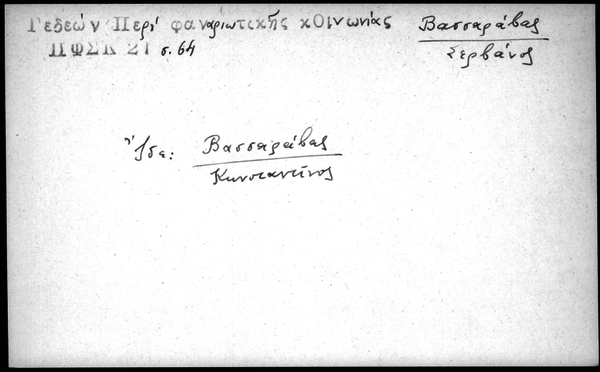 Γεδεών Περί φαναριωτικῆς κοινωνίας
ΠΦΣΚ 21 σ. 64
Βασσαράβας
Σερβάνος
Ἴδε: Βασσαράβας
Κωνσταντῖνος